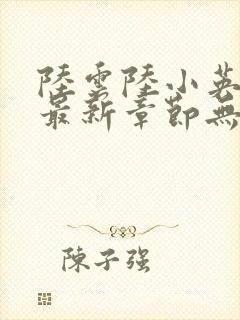 陸雲陸小英
最新章節無
陳子强